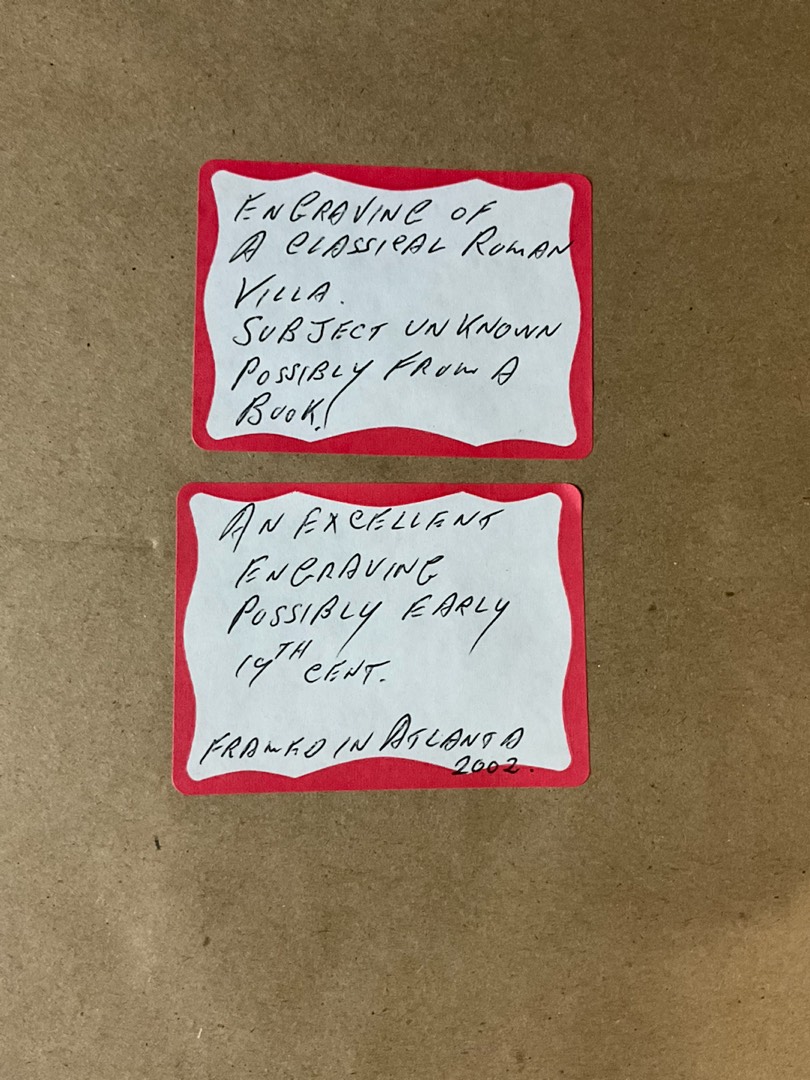 ENGRAVING OF
A CLASSICAL ROMAN
VILLA.
SUBJECT UNKNOWN
POSSIBLY FROM A
BOOK.
AN EXCELLENT
ENGRAVING
POSSIBLY EARLY
19TH CENT.
FRAMED IN ATLANTA
2002.